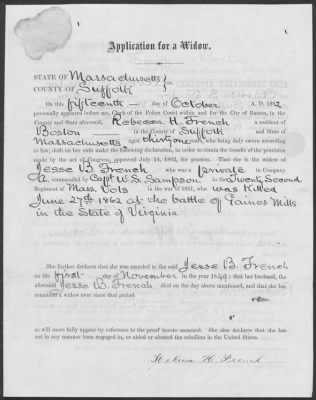 1.
Application for a Widow.
STATE OF Massachusetts
COUNTY OF Suffolk } ss:
On this fifteenth day of October A. D. 1862,
personally appeared before me, Clerk of the Police Court within and for the City of Boston, in the
County and State aforesaid, Rebecca H. French a resident of
Boston in the County of Suffolk and State of
Massachusetts aged thirty one years, who being duly sworn according
to law, doth on her oath make the following declaration, in order to obtain the benefit of the provision
made by the act of Congress, approved July 14, 1862, for pension. That she is the widow of
Jesse B. French who was a private in Company
A commanded by Capt W. S. Sampson in the Twenty Second
Regiment of Mass. Vols in the war of 1861, who was killed
June 27th 1862 at the battle of Gaines Mills
in the State of Virginia
She further declares that she was married to the said Jesse B. French
on the first day of November in the year 1849; that her husband, the
aforesaid Jesse B. French died on the day above mentioned, and that she has
remained a widow ever since that period
as will more fully appear by reference to the proof hereto annexed. She also declares that she has
not in any manner been engaged in, or aided or abetted the rebellion in the United States.
Rebecca H. French